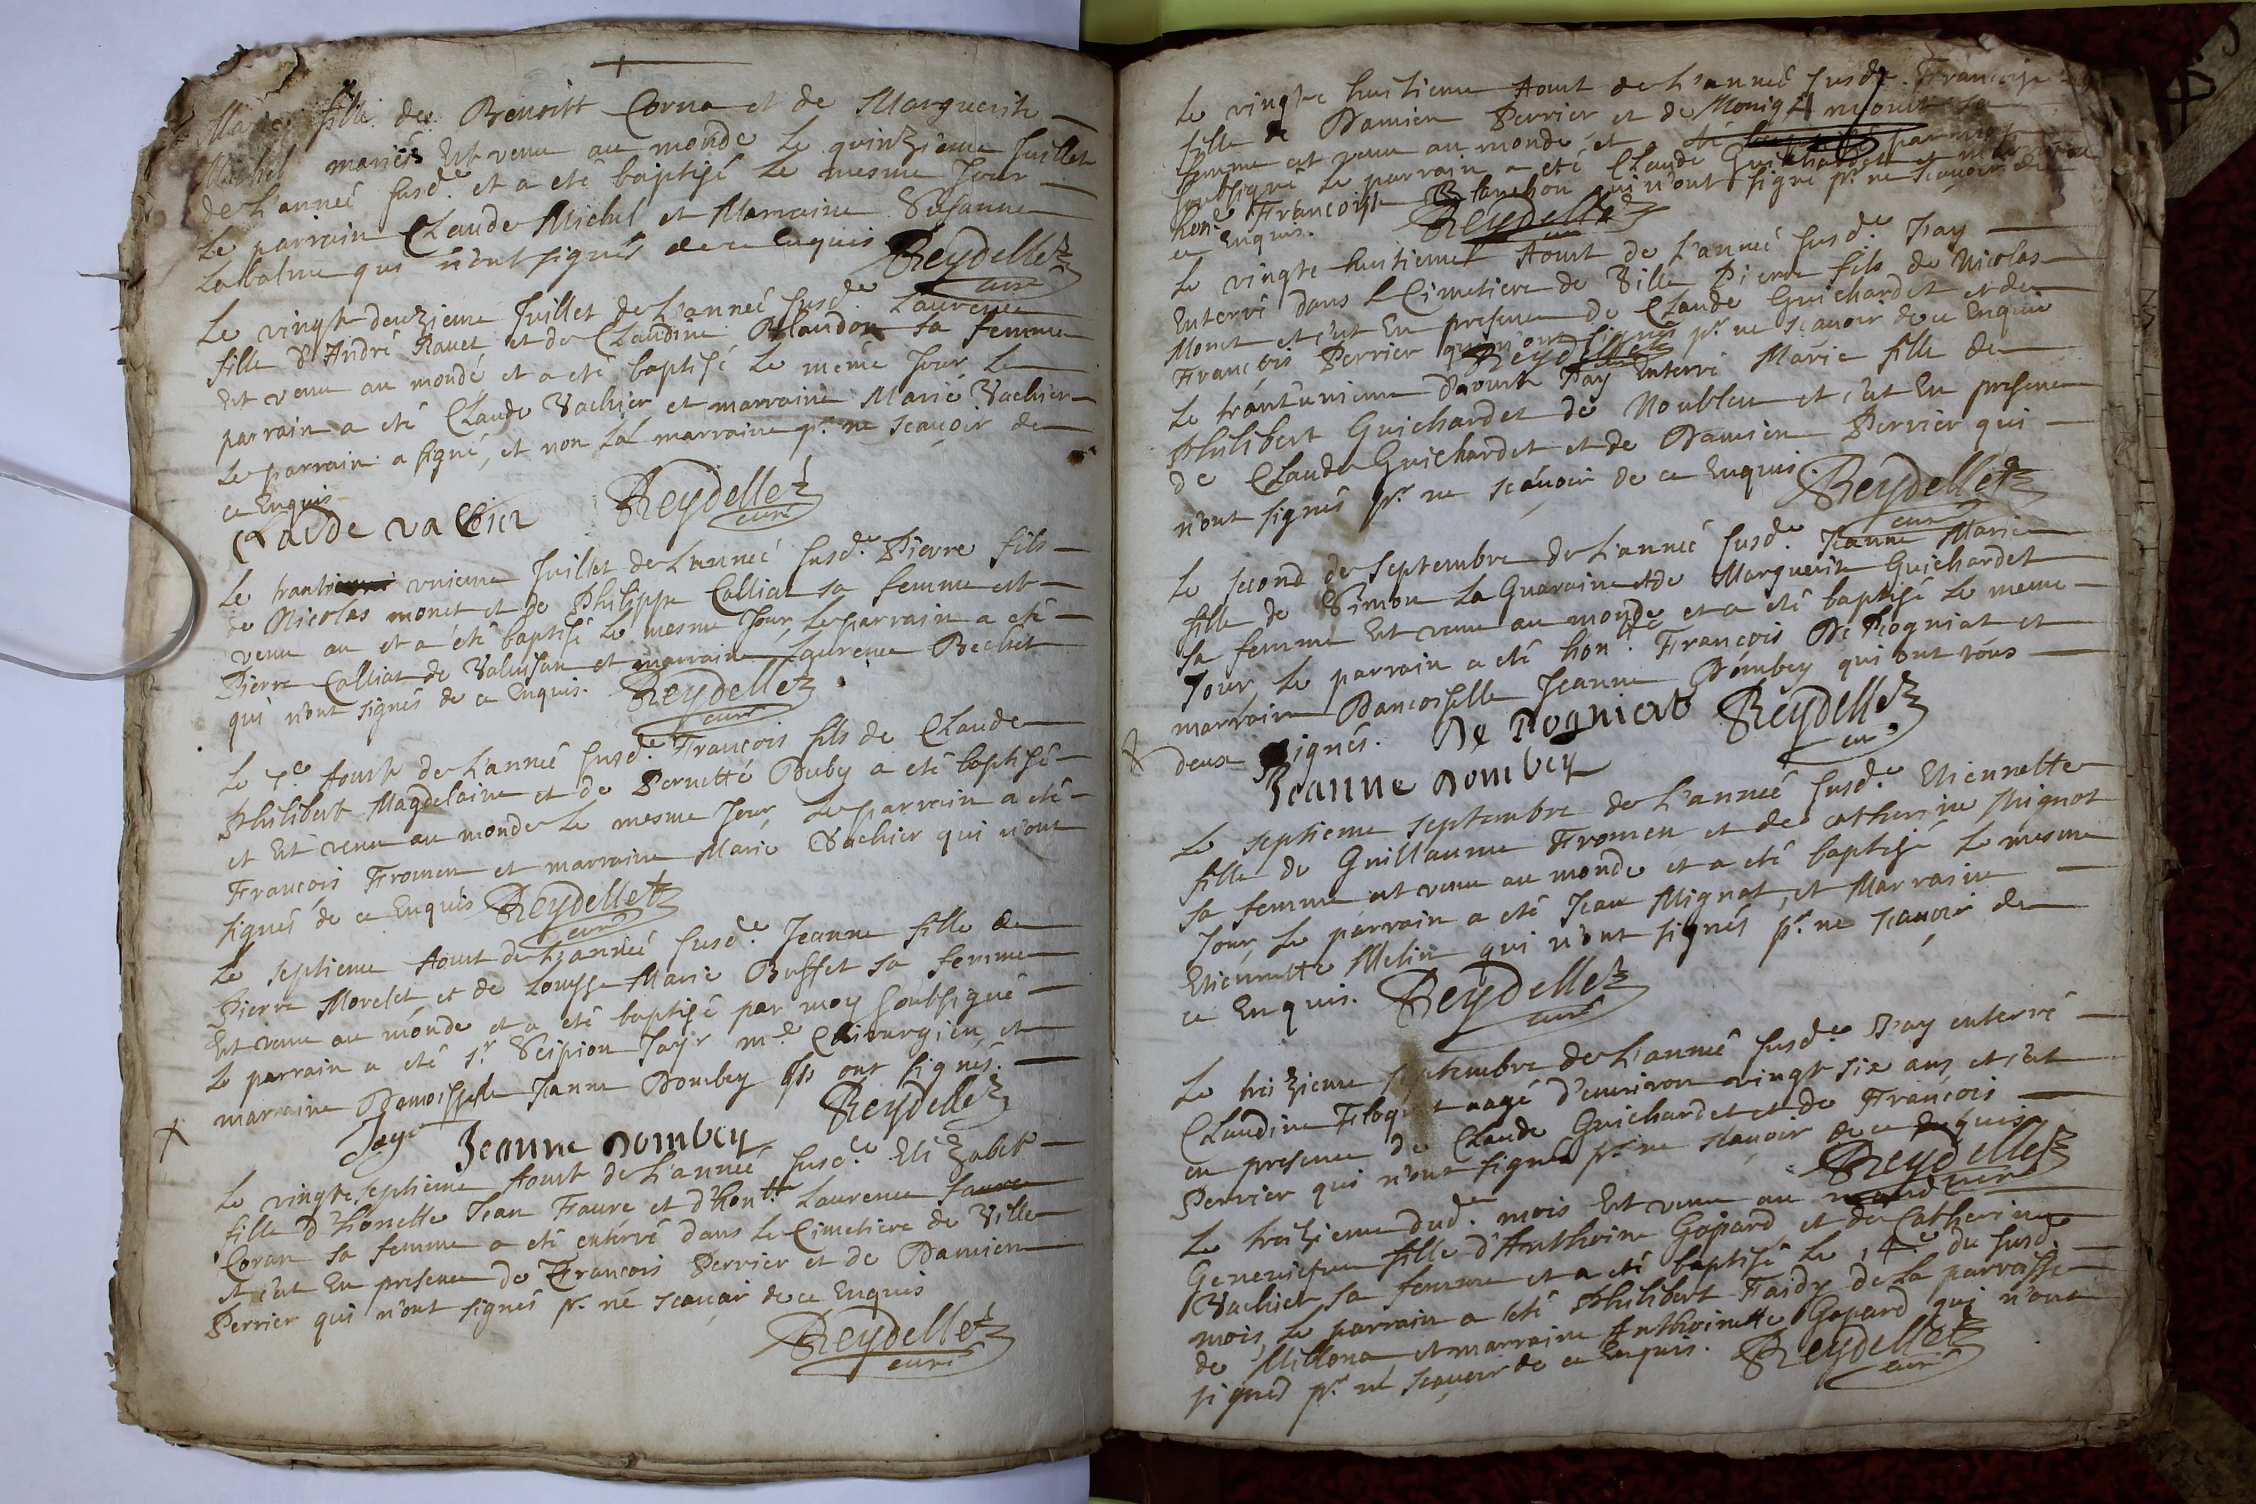 Marie fille de Benoitt Corna et de Marguerite
Michel mariés Est venu au monde Le quinzieme Juillet
de L'anneé susde. et a eté baptisé Le mesme Jour
Le parrain Claude Michel et Marraine Susanne
Labalme qui n'ont signés de ce Enquis Reydellet
curé
Le vingt deuzieme Juillet de L'anneé susde. Laurence
fille d'André Ravet et de Claudine Blandon sa femme
Est venu au monde et a eté baptisé Le meme Jour Le
parrain a eté Claude Vachier et marraine Marie Vachier
Le parrain a signé, et non La marraine pr. ne scauoir de
ce Enquis
Claude vachier Reydellet
curé
Le trant unieme Juillet de L'anneé susde. Pierre fils
de Nicolas monet et de Philippe Calliat sa femme est
venu au et a eté baptisé Le mesme Jour Le parrain a eté
Pierre Calliat de et marraine Laurence Bechet
qui n'ont signés de ce Enquis. Reydellet
curé
Le 7e. Aoust de L'anneé susde. François fils de Claude
Philibert Magdelaine et de Pernette Duby a eté baptisé
et Est venu au monde Le mesme Jour Le parrain a eté
François Fromen et marraine Marie Vachier qui n'ont
signés de ce Enquis Reydellet
curé
Le septieme Aoust de L'anneé susde. Jeanne fille de
Pierre Morelet et de Louysse Marie Buffet sa femme
Est venu au monde et a eté baptisé par moy soubsigné
Le parrain a eté sr. Scipion Jayr me. Chirurgien et
marraine Damoisselle Janne Dombey Ils ont signés.
Jayr Jeanne Dombey Reydellet
Le vingt septieme Aoust de L'anneé susde. Elizabet
fille d'honnette Jean Faure et d'hontte. Laurence
Coran sa femme a eté enterré dans Le Cimetiere de Ville
et c'est En presence de François Perrier et de Damien
Perrier qui n'ont signés pr. ne scauoir de ce Enquis
Reydellet
curé
Le vingt huitieme Aoust de L'anneé susde. Françoise
fille de Damien Perrier et de sa
femme est venu au monde et
soubsigné Le parrain a eté Claude Guichardet et marraine
hone. Françoise Blanchon qui n'ont signé pr. ne scauoir de
ce Enquis. Reydellet
curé
Le vingt huitieme Aoust de L'anneé susde. J'ay
Enterré dans le Cimetiere de Ville Pierre fils de Nicolas
Monet et c'est En presence de Claude Guichardet et de
François Perrier qui n'ont signés pr. ne scauoir de ce Enquis
Reydellet
Le trantunieme d'aoust J'ay Enterré Marie fille de
Philibert Guichardet de Noublen et c'est En presence
de Claude Guichardet et de Damien Perrier qui
n'ont signés pr. ne scauoir de ce Enquis. Reydellet
curé
Le second de Septembre de L'anneé susde. Jeanne Marie
fille de Simon La Guaraine et de Marguerite Guichardet
sa femme Est venu au monde et a eté baptisé Le meme
Jour, Le parrain a eté hontte. François De Rogniat et
marraine Damoisselle Jeanne Dombey qui ont tous
deux signés. De Rogniat Reydellet
curé
Jeanne Dombey
Le septieme septembre de L'anneé susde. Etiennette
fille de Guillaume Fromen et de catherine Mignot
sa femme est venu au monde et a eté baptisé Le mesme
Jour, Le parrain a eté Jean Mignot, et Marraine
Etiennette Melin qui n'ont signés pr. ne scauoir de
ce Enquis. Reydellet
curé
Le treizieme septembre de L'anneé susde. J'ay enterré
Claudine aagé d'environ vingt six ans et c'est
en presence de Claude Guichardet et de François
Perrier qui n'ont signés pr. ne scauoir de ce Enquis
Reydellet
curé
Le treizieme dude. mois Est venu au monde
Genevieve fille d'Anthoine Gopard et de Catherine
Vachier sa femme et a eté baptisé Le 14e. du susde.
mois, Le parrain a eté Philibert Faidy de La parroisse
de Millona et marraine Anthoinette Gopard qui n'ont
signés pr. ne scauoir de ce Enquis. Reydellet
curé